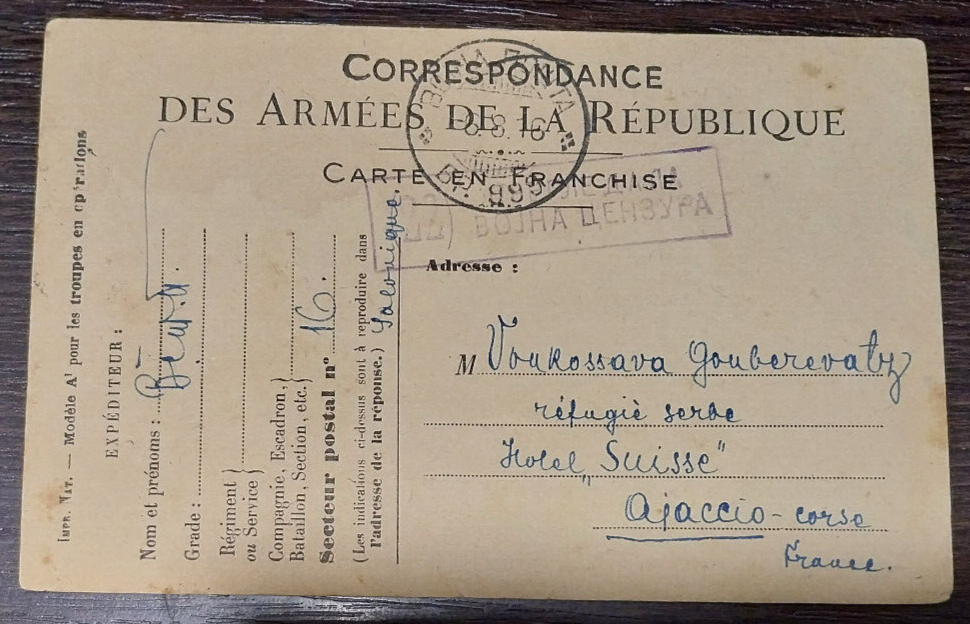 CORRESPONDANCE
DES ARMÉES DE LA RÉPUBLIQUE
CARTE EN FRANCHISE
8.8.16
BR. 999
ВОЈНА ЦЕНЗУРА
Adresse :
M Voukossava Gouberevatz
réfugiè serbe
Hotel „Suisse"
Ajaccio - corse
France.
IMPR. NAT. — Modèle A¹ pour les troupes en opérations
EXPÉDITEUR :
Nom et prénoms :
Grade :
Régiment
ou Service }
Compagnie, Escadron, }
Bataillon, Section, etc. }
Secteur postal n° 16.
(Les indications ci-dessus sont à reproduire dans
l'adresse de la réponse.) Salonique.